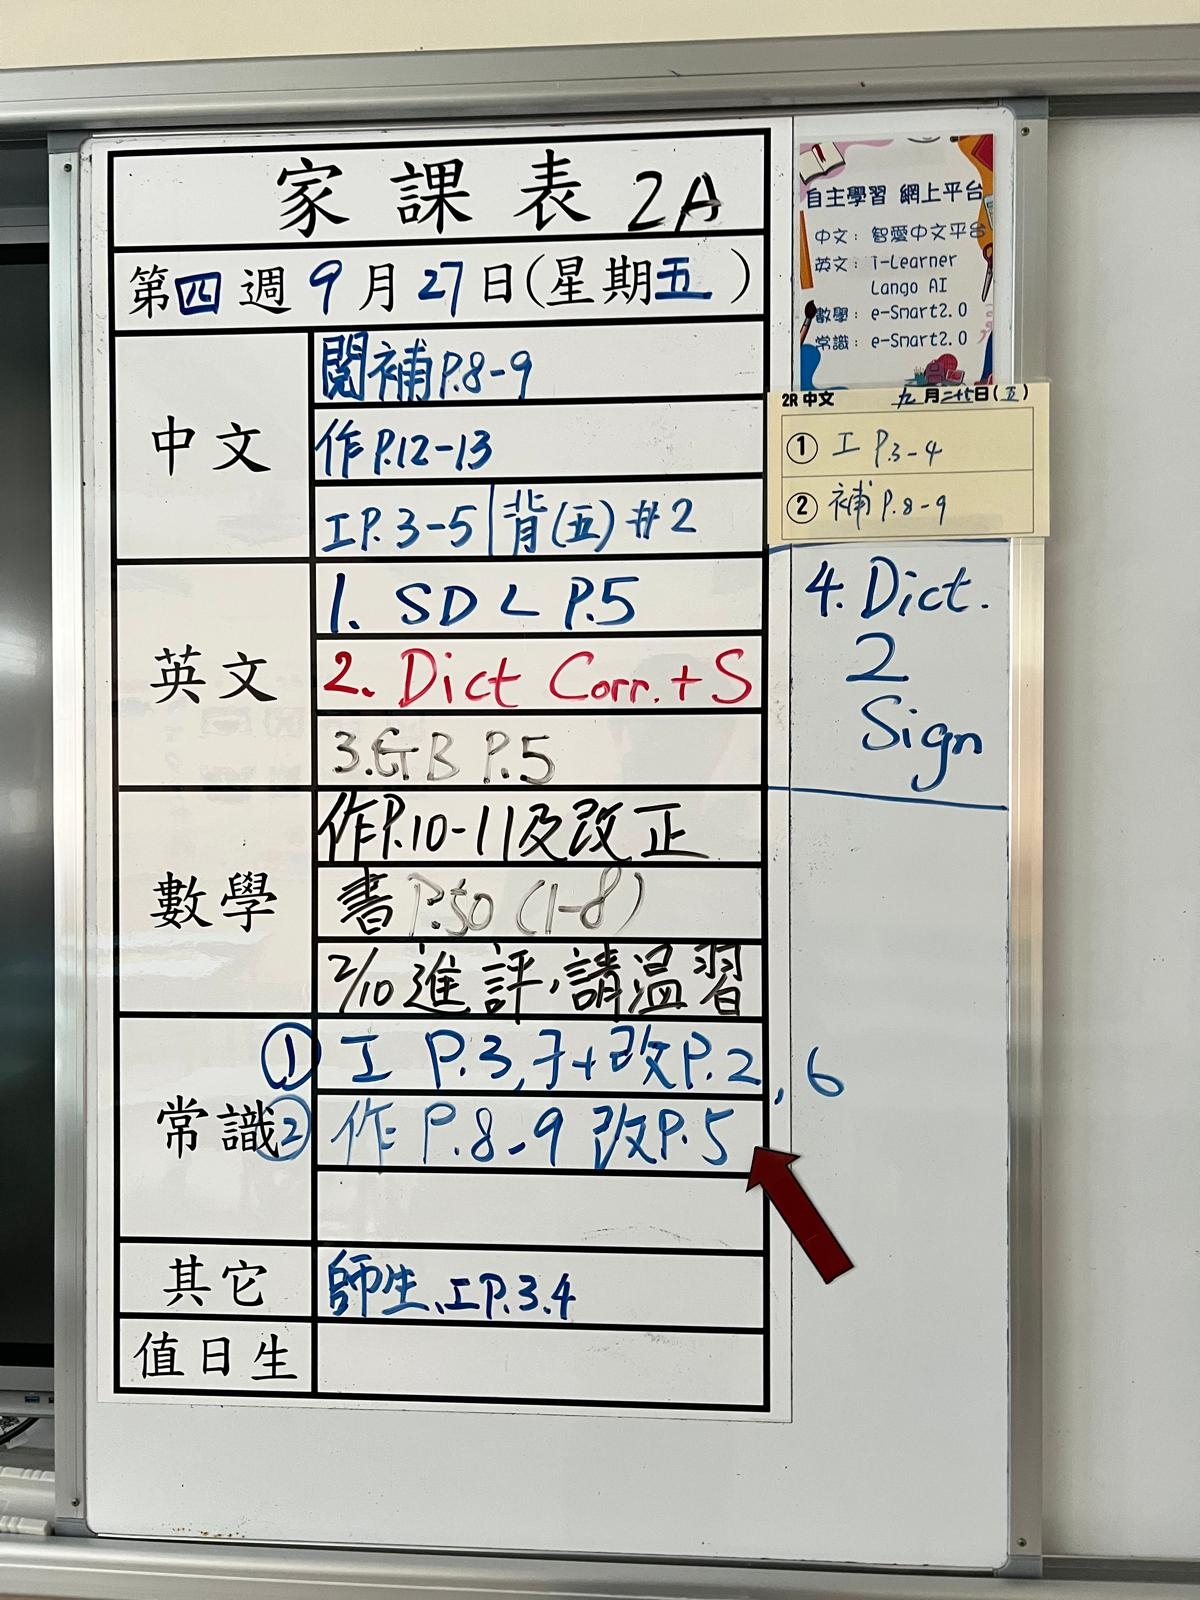 家課表 2A
第四週 9月27日(星期五)
中文
閱補P.8-9
作P.12-13
工P.3-5|背(五)#2
英文
1. SDL P.5
2. Dict Corr. + S
3. GB P.5
4. Dict.
2
Sign
數學
作P.10-11及改正
書P.50 (1-8)
2/10進評,請溫習
常識
① 工 P.3, 7+改P.2, 6
② 作 P.8-9 改P.5
其它
師生、工P.3.4
值日生
自主學習 網上平台
中文: 智愛中文平台
英文: i-Learner
Lango AI
數學: e-Smart2.0
常識: e-Smart2.0
2R 中文 九月二十七日(五)
① 工 P.3-4
② 補 P.8-9